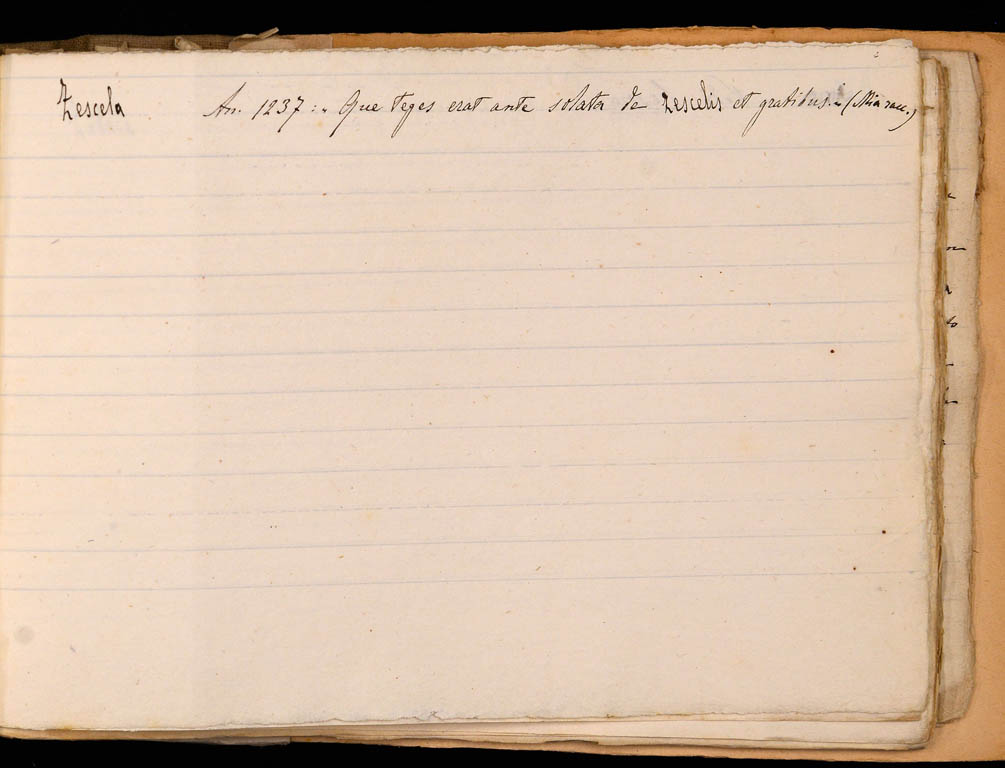 Zescela An. 1237: „ Que teges erat ante solata de zescelis et gratibus." (Mia racc.)